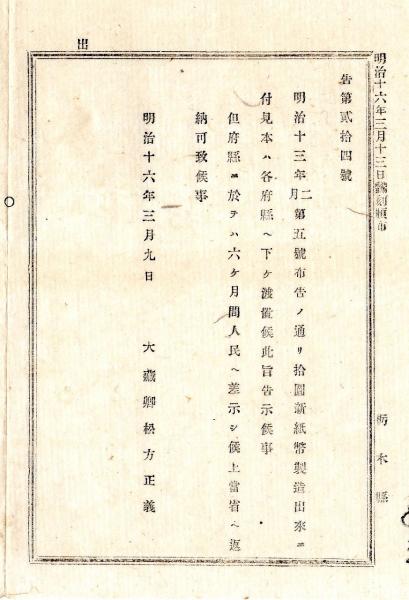 明治十六年三月十三日飜刻頒布
栃木縣
告第貳拾四號
明治十三年二月第五號布告ノ通リ拾圓新紙幣製造出來ニ
付見本ハ各府縣ヘ下ケ渡置候此旨告示候事
但府縣ニ於テハ六ケ月間人民ヘ差示シ候上當省ヘ返
納可致候事
明治十六年三月九日
大藏卿松方正義
出